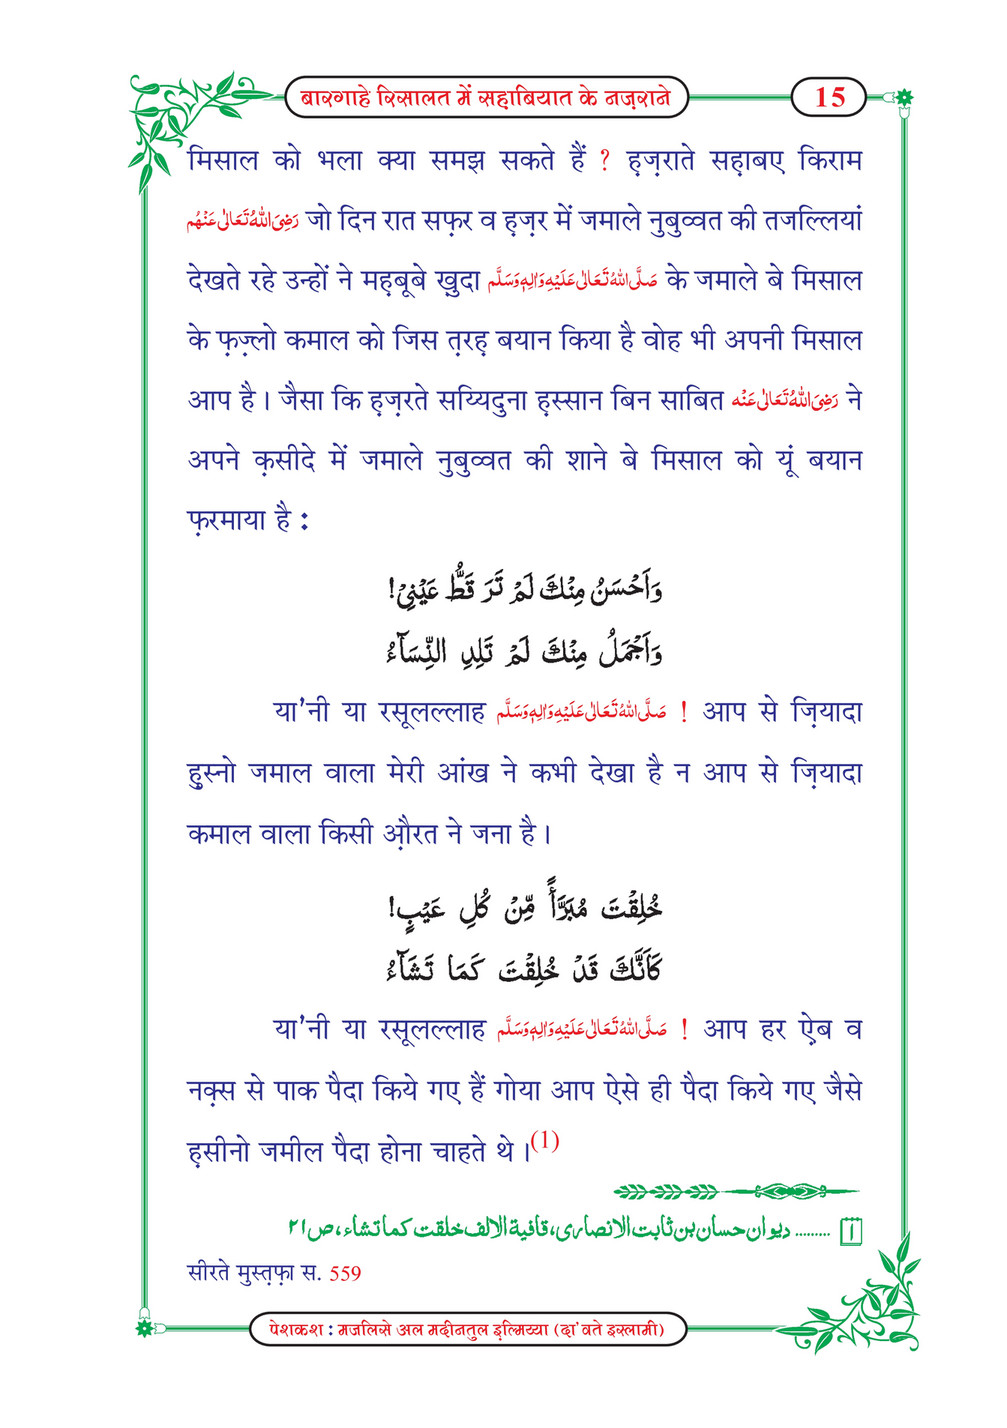 बारगाहे रिसालत में सह़ाबियात के नज़राने
15
मिसाल को भला क्या समझ सकते हैं ? ह़ज़राते सह़ाबए किराम
رَضِیَ اللّٰہُ تَعَالٰی عَنْہُم जो दिन रात सफ़र व ह़ज़र में जमाले नुबुव्वत की तजल्लियां
देखते रहे उन्हों ने मह़बूबे ख़ुदा صَلَّی اللّٰہُ تَعَالٰی عَلَیْہِ وَاٰلِہٖ وَسَلَّم के जमाले बे मिसाल
के फ़ज़्लो कमाल को जिस त़रह़ बयान किया है वोह भी अपनी मिसाल
आप है । जैसा कि ह़ज़रते सय्यिदुना ह़स्सान बिन साबित رَضِیَ اللّٰہُ تَعَالٰی عَنْہ ने
अपने क़सीदे में जमाले नुबुव्वत की शाने बे मिसाल को यूं बयान
फ़रमाया है :
وَاَحْسَنُ مِنْكَ لَمْ تَرَ قَطُّ عَيْنِيْ!
وَاَجْمَلُ مِنْكَ لَمْ تَلِدِ النِّسَآءُ
या'नी या रसूलल्लाह صَلَّی اللّٰہُ تَعَالٰی عَلَیْہِ وَاٰلِہٖ وَسَلَّم ! आप से ज़ियादा
ह़ुस्नो जमाल वाला मेरी आंख ने कभी देखा है न आप से ज़ियादा
कमाल वाला किसी औ़रत ने जना है ।
خُلِقْتَ مُبَرَّأً مِّنْ كُلِ عَيْبٍ!
كَاَنَّكَ قَدْ خُلِقْتَ كَمَا تَشَآءُ
या'नी या रसूलल्लाह صَلَّی اللّٰہُ تَعَالٰی عَلَیْہِ وَاٰلِہٖ وَسَلَّم ! आप हर ऐ़ब व
नक़्स से पाक पैदा किये गए हैं गोया आप ऐसे ही पैदा किये गए जैसे
ह़सीनो जमील पैदा होना चाहते थे ।(1)
١ ......... دیوان حسان بن ثابت الانصاری، قافیة الالف خلقت کما تشاء، ص٢١
सीरते मुस्त़फ़ा स. 559
पेशकश : मजलिसे अल मदीनतुल इ़ल्मिय्या (दा'वते इस्लामी)